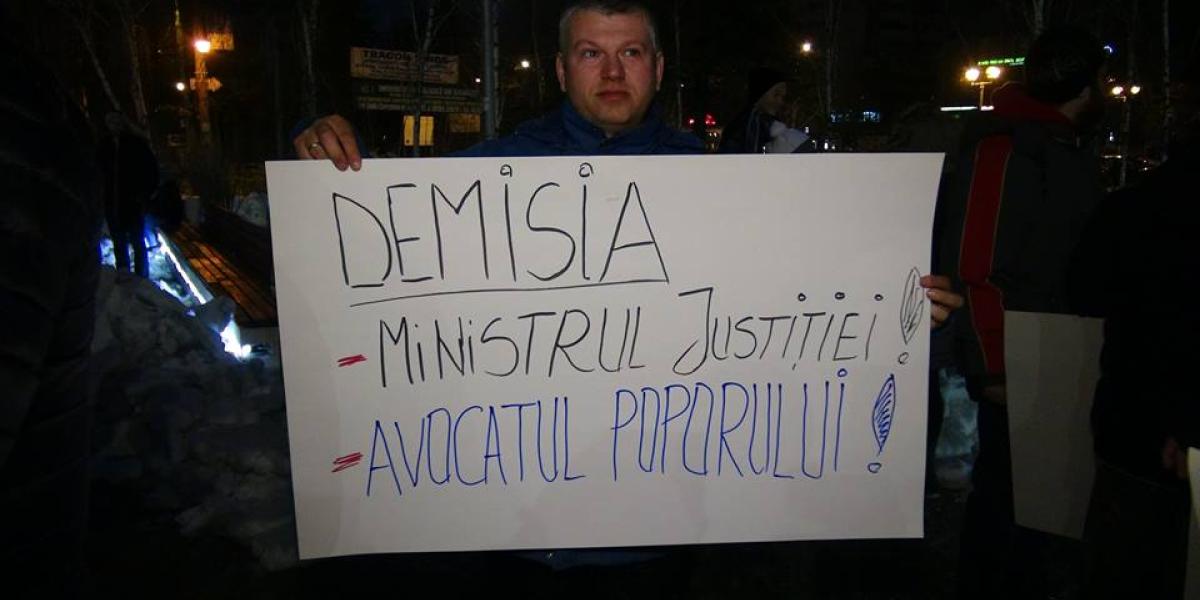 DEMISIA
- MINISTRUL JUSTIȚIEI !
- AVOCATUL POPORULUI !